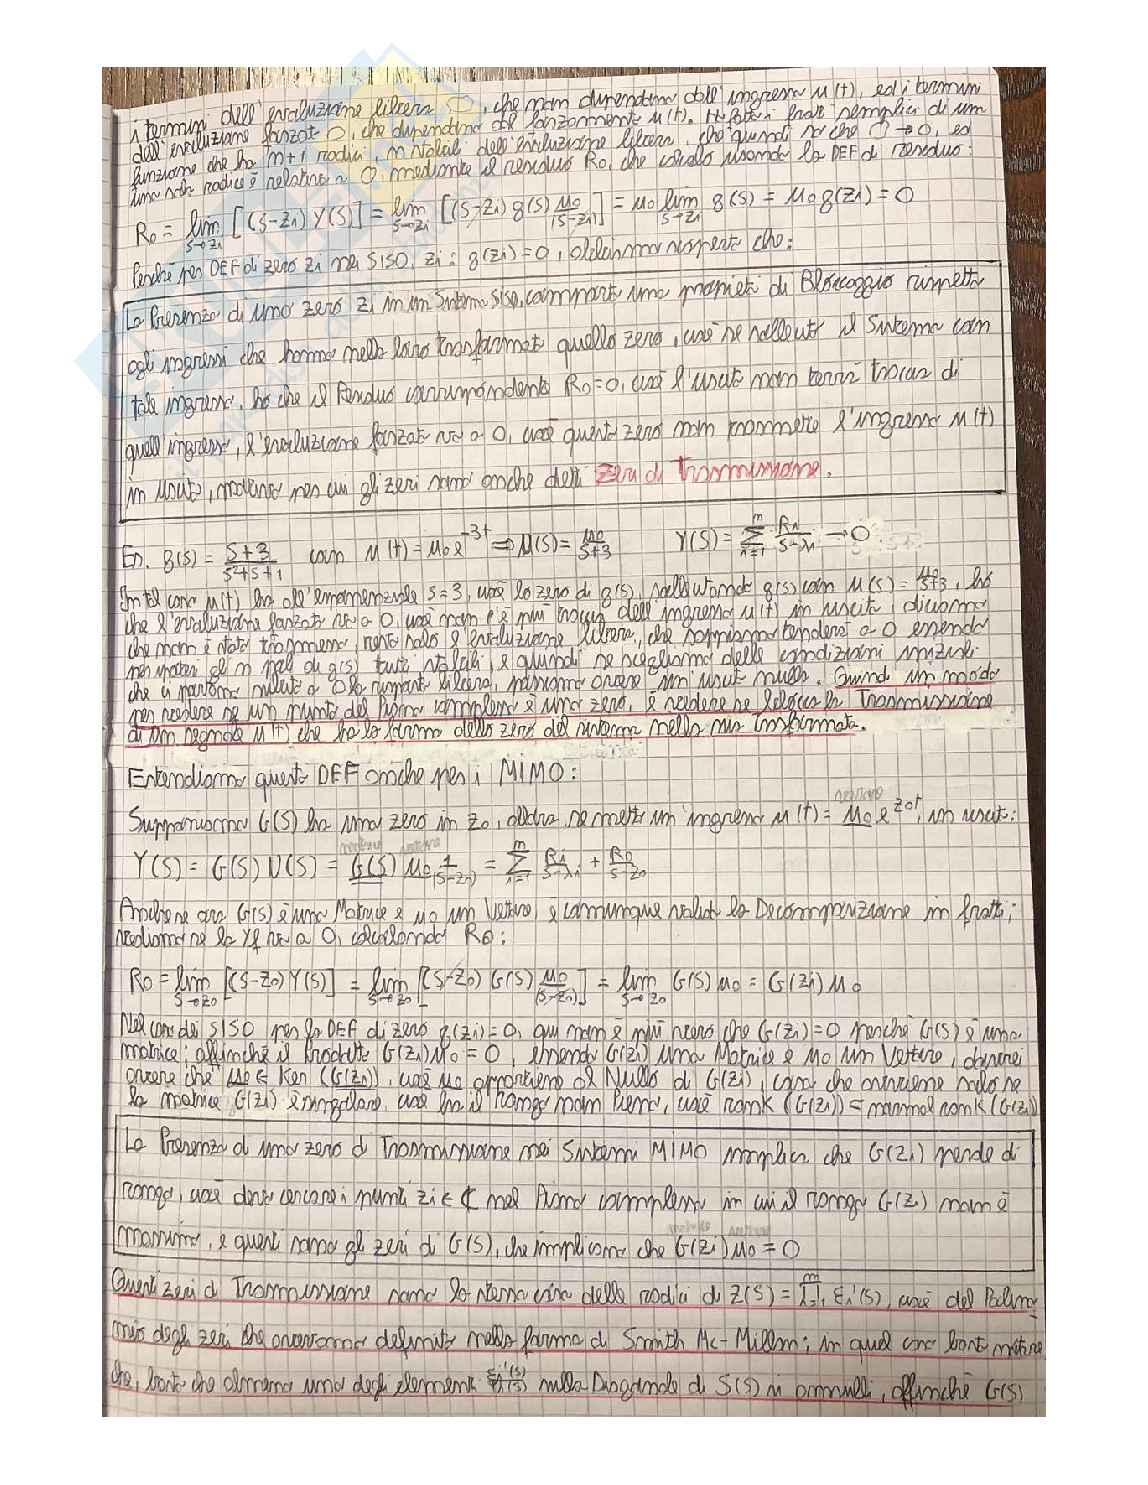 i termini dell'evoluzione libera 0, che non dipendono dall'ingresso u(t), ed i termini
dall'evoluzione forzata 0, che dipendono dal forzamento u(t). fratti semplici di una
funzione che ha n+1 radici, n stabili dell'evoluzione libera, che quindi so che 0 → 0, ed
una radice è relativa a 0 mediante il residuo R0, che calcolo usando la DEF di residuo:
R0 = lim s→zi [(s-zi) Y(s)] = lim s→zi [(s-zi) g(s) μ0/(s-zi)] = μ0 lim s→zi g(s) = μ0 g(zi) = 0
Perché per DEF di zero zi nei SISO, zi : g(zi)=0, otteniamo che:
La Presenza di uno zero zi in un Sistema SISO, comporta una proprietà di Bloccaggio rispetto
agli ingressi che hanno nella loro trasformata quello zero, cioè se sollecito il Sistema con
tale ingresso, ho che il Residuo corrispondente R0=0, cioè l'uscita non terrà traccia di
quell'ingresso, l'evoluzione forzata va a 0, cioè questo zero non trasmette l'ingresso u(t)
in uscita, motivo per cui gli zeri sono anche detti Zeri di Trasmissione.
Es. g(s) = s+3/s²+s+1 con u(t) = μ0 e^-3t ⇒ U(s) = μ0/s+3 Y(s) = Σ Ri/s-λi → 0
In tal caso u(t) ha all'esponenziale s=3, cioè lo zero di g(s), sollecitando g(s) con u(s) = μ0/s+3, ho
che l'evoluzione forzata va a 0, cioè non c'è più traccia dell'ingresso u(t) in uscita, diciamo
che non è stato trasmesso, resta solo l'evoluzione libera, che sappiamo tenderà a 0 essendo
per ipotesi gli n poli di g(s) tutti stabili, e quindi se scegliamo delle condizioni iniziali
che ci portano subito a 0 la risposta libera, possiamo avere un'uscita nulla. Quindi un modo
per vedere se un punto del Piano complesso è uno zero, è vedere se blocca la Trasmissione
di un segnale u(t) che ha la forma dello zero del sistema nella sua Trasformata.
Estendiamo questa DEF anche per i MIMO:
Supponiamo G(s) ha uno zero in z0, allora se metto un ingresso u(t) = μ0 e^z0t, in uscita:
Y(s) = G(s) U(s) = G(s) μ0 1/(s-z0) = Σ Ri/s-λi + R0/s-z0
Anche se ora G(s) è una Matrice e μ0 un Vettore, è comunque valida la Decomposizione in fratti;
vediamo se la Yf va a 0, calcolando R0:
R0 = lim s→z0 [(s-z0) Y(s)] = lim s→z0 [(s-z0) G(s) μ0/(s-z0)] = lim s→z0 G(s) μ0 = G(zi) μ0
Nel caso dei SISO per la DEF di zero g(zi)=0, qui non è più vero che G(zi)=0 perché G(s) è una
matrice; affinché il Prodotto G(zi)μ0 = 0, essendo G(zi) una Matrice e μ0 un Vettore, dovrei
avere che μ0 ∈ Ker (G(z0)), cioè μ0 appartiene al Nullo di G(zi), cosa che avviene solo se
la matrice G(zi) è singolare, cioè ha il rango non Pieno, cioè rank (G(zi)) < normal rank (G(zi))
La Presenza di uno zero di Trasmissione nei Sistemi MIMO implica che G(zi) perde di
rango, cioè devo cercare i punti zi ∈ ℂ nel Piano complesso in cui il rango G(zi) non è
massimo, e questi sono gli zeri di G(s), che implicano che G(zi)μ0 = 0
Questi zeri di Trasmissione sono la stessa cosa delle radici di Z(s) = Π εi(s), cioè del Polino-
mio degli zeri che avevamo definito nella forma di Smith Mc-Millan; in quel caso basta notare
che, basta che almeno uno degli elementi nella Diagonale di S(s) si annulli, affinché G(s)